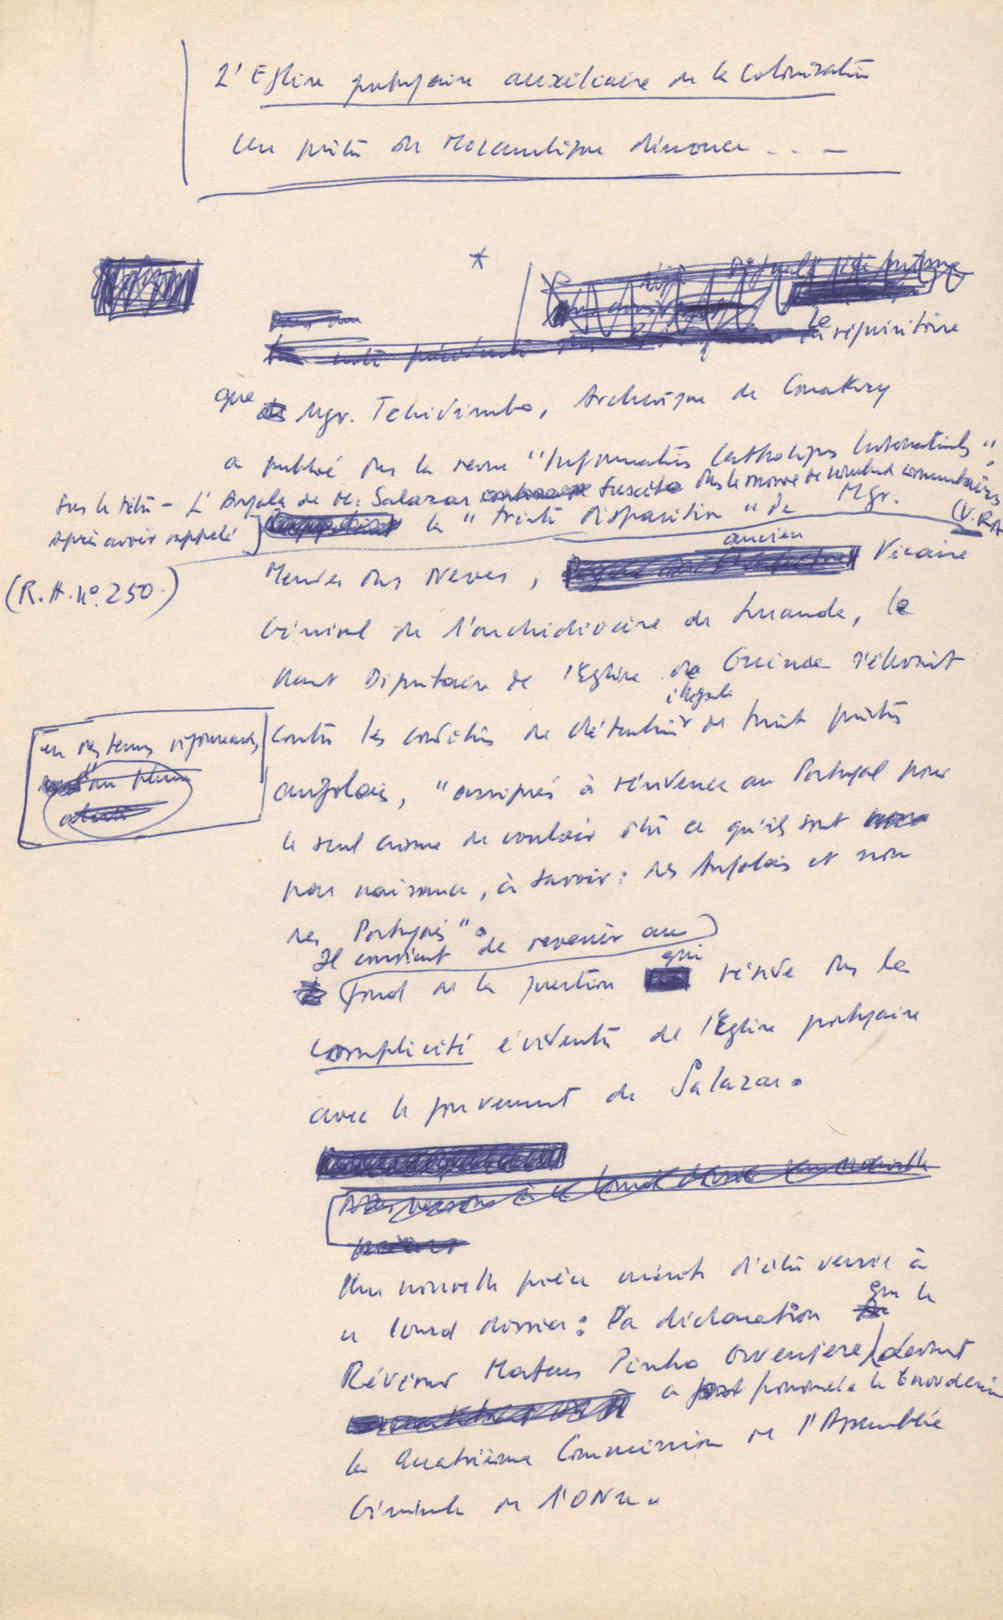 L'Eglise portugaise auxiliaire de la Colonisation
Un prêtre du Mozambique dénonce . . . –
*
le réquisitoire
que Mgr. Tchidimbo, Archevêque de Conakry
a publié dans la revue "Informations Catholiques Internationales",
sur le titre – L'Angola de M. Salazar suscite dans le monde de nombreux commentaires
(V.R.A
après avoir rappelé la "triste disparition" de Mgr.
(R.A. nº. 250.)
Mendes das Neves, ancien Vicaire
Général de l'archidiocèse de Luanda, le
haut Dignitaire de l'Eglise de Guinée s'élevait
en des termes vigoureux,
contre les conditions de détention illégale de huit prêtres
angolais, "assignés à résidence au Portugal pour
le seul crime de vouloir être ce qu'ils sont
par naissance, à savoir : des Angolais et non
des Portugais".
Il convient de revenir au
fond de la question qui réside dans la
complicité évidente de l'Eglise portugaise
avec le gouvernement de Salazar.
Une nouvelle pièce mérite d'être versée à
ce lourd dossier : la déclaration que le
Révérend Mateus Pinho Gwenjere devant
a prononcée le
la Quatrième Commission de l'Assemblée
Générale de l'ONU.